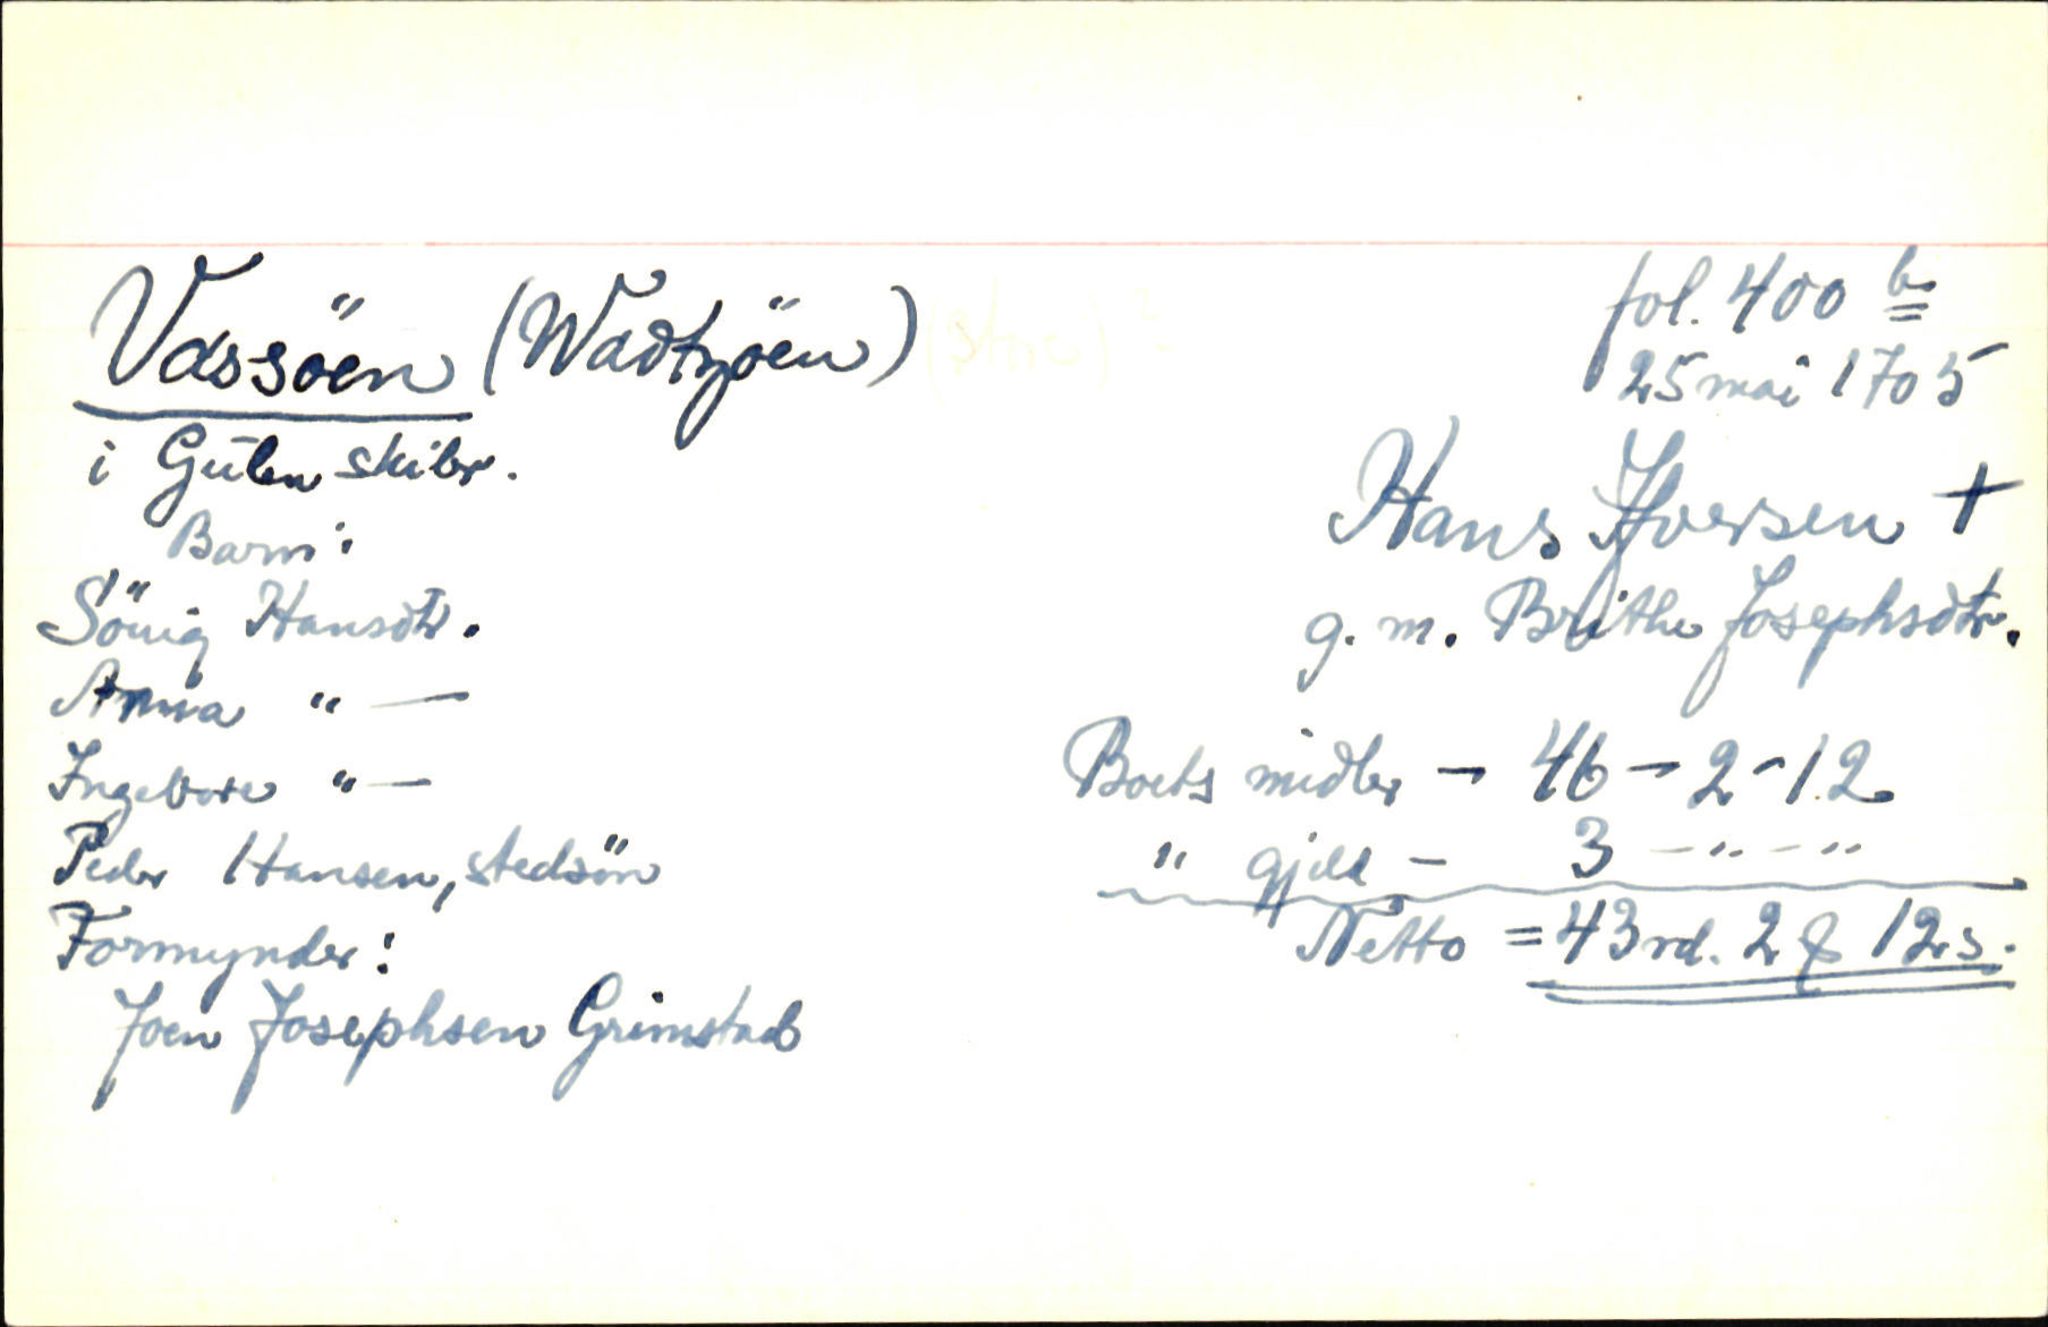 Vassöen (Wadtzöen)
i Gulen skibr.
Barn:
Sönig Hansdtr.
Anna " —
Ingebore " —
Peder Hansen, stedsön
Formynder:
Joen Josephsen Grimstad
fol. 400 b
25 mai 1705
Hans Iversen +
g. m. Brithe Josephsdtr.
Boets midler - 46 - 2 - 12
" gjeld - 3 - " - "
Netto = 43 rd. 2 12 s.